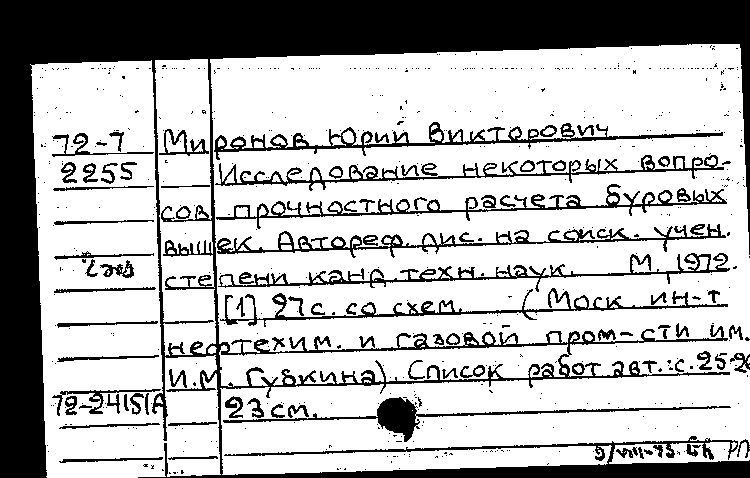 72-7 Миронов, Юрий Викторович
2255 Исследование некоторых вопро-
сов прочностного расчета буровых
вышек. Автореф. дис. на соиск. учен.
степени канд. техн. наук. М., 1972.
[1], 27 с. со схем. (Моск. ин-т
нефтехим. и газовой пром-сти им.
И.М. Губкина). Список работ авт.: с. 25-26
72-24151А 23 см.
9/VIII-73